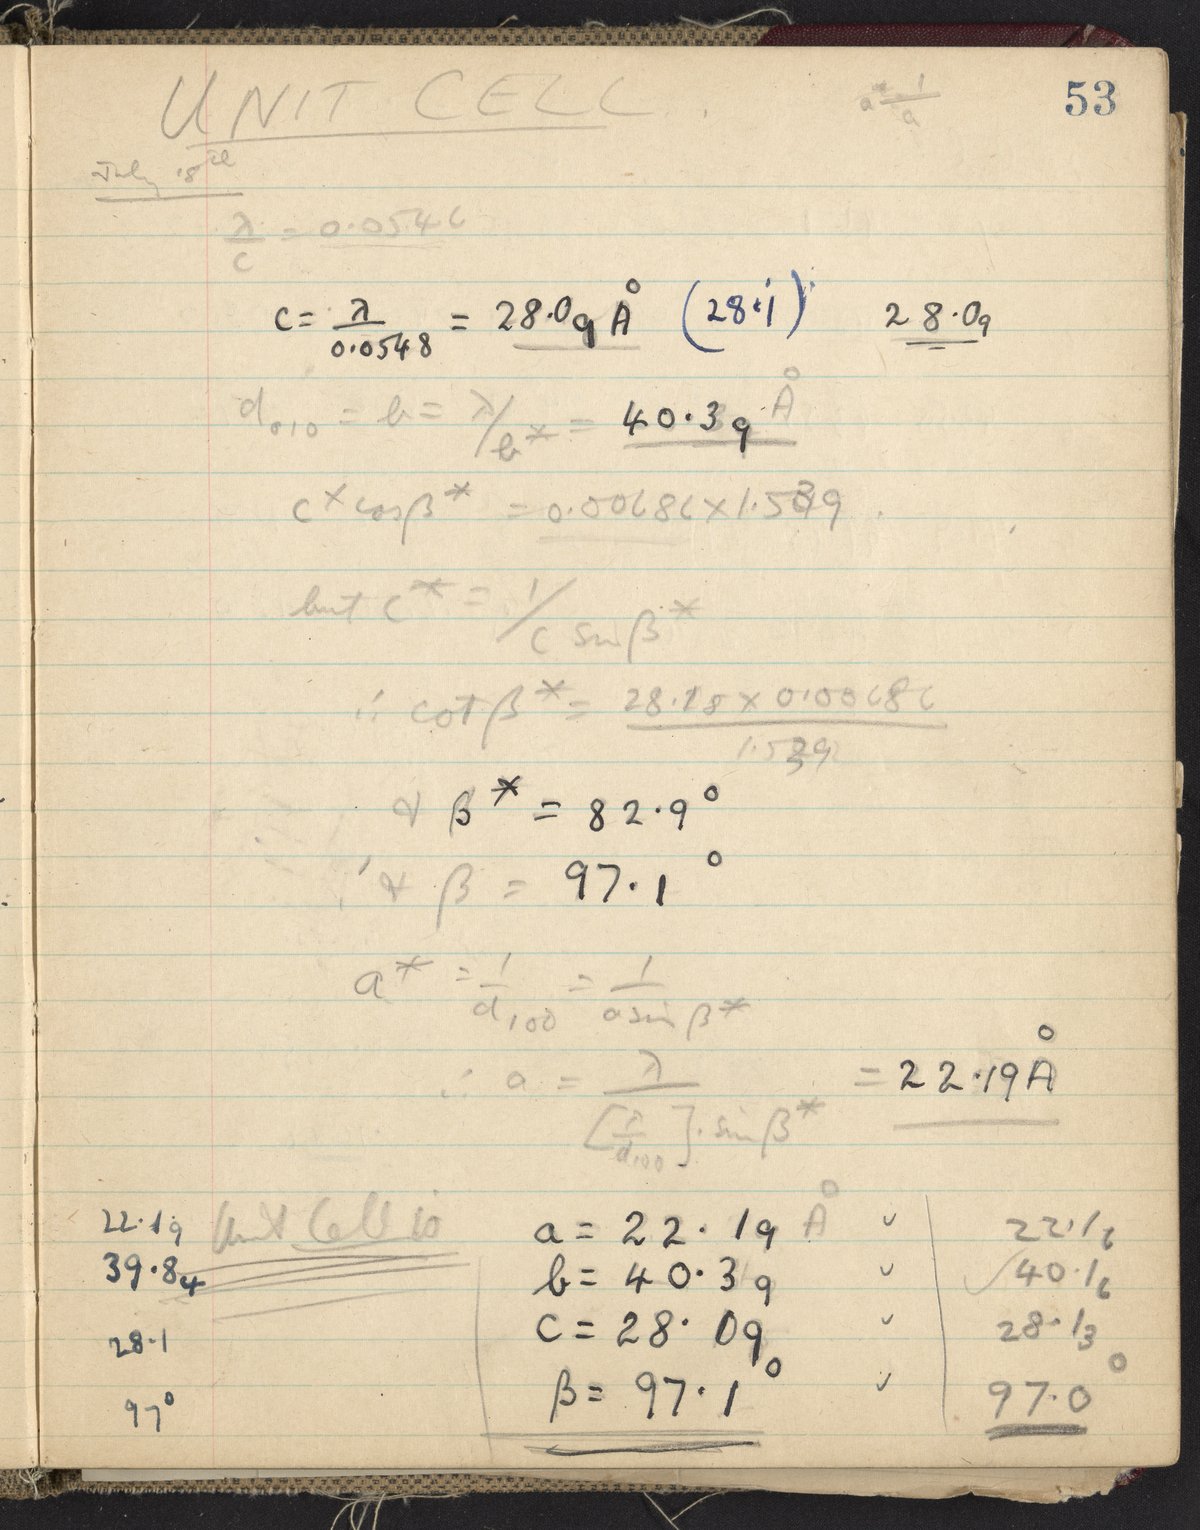 UNIT CELL.
53
a* = 1/a
July 18th
λ/c = 0.0546
c = λ/0.0548 = 28.09 Å (28.1) 28.09
d010 = b = λ/b* = 40.39 Å
c* cosβ* = 0.00686 × 1.539.
but c* = 1/c sin β*
∴ cot β* = 28.18 × 0.00686 / 1.539
& β* = 82.9°
∴ & β = 97.1°
a* = 1/d100 = 1/a sin β*
∴ a = λ/[λ/d100].sin β* = 22.19 Å
22.19 Unit Cell is a = 22.19 Å ✓ 22.16
39.84 b = 40.39 ✓ ✓40.16
28.1 c = 28.09 ✓ 28.13
97° β = 97.1° ✓ 97.0°